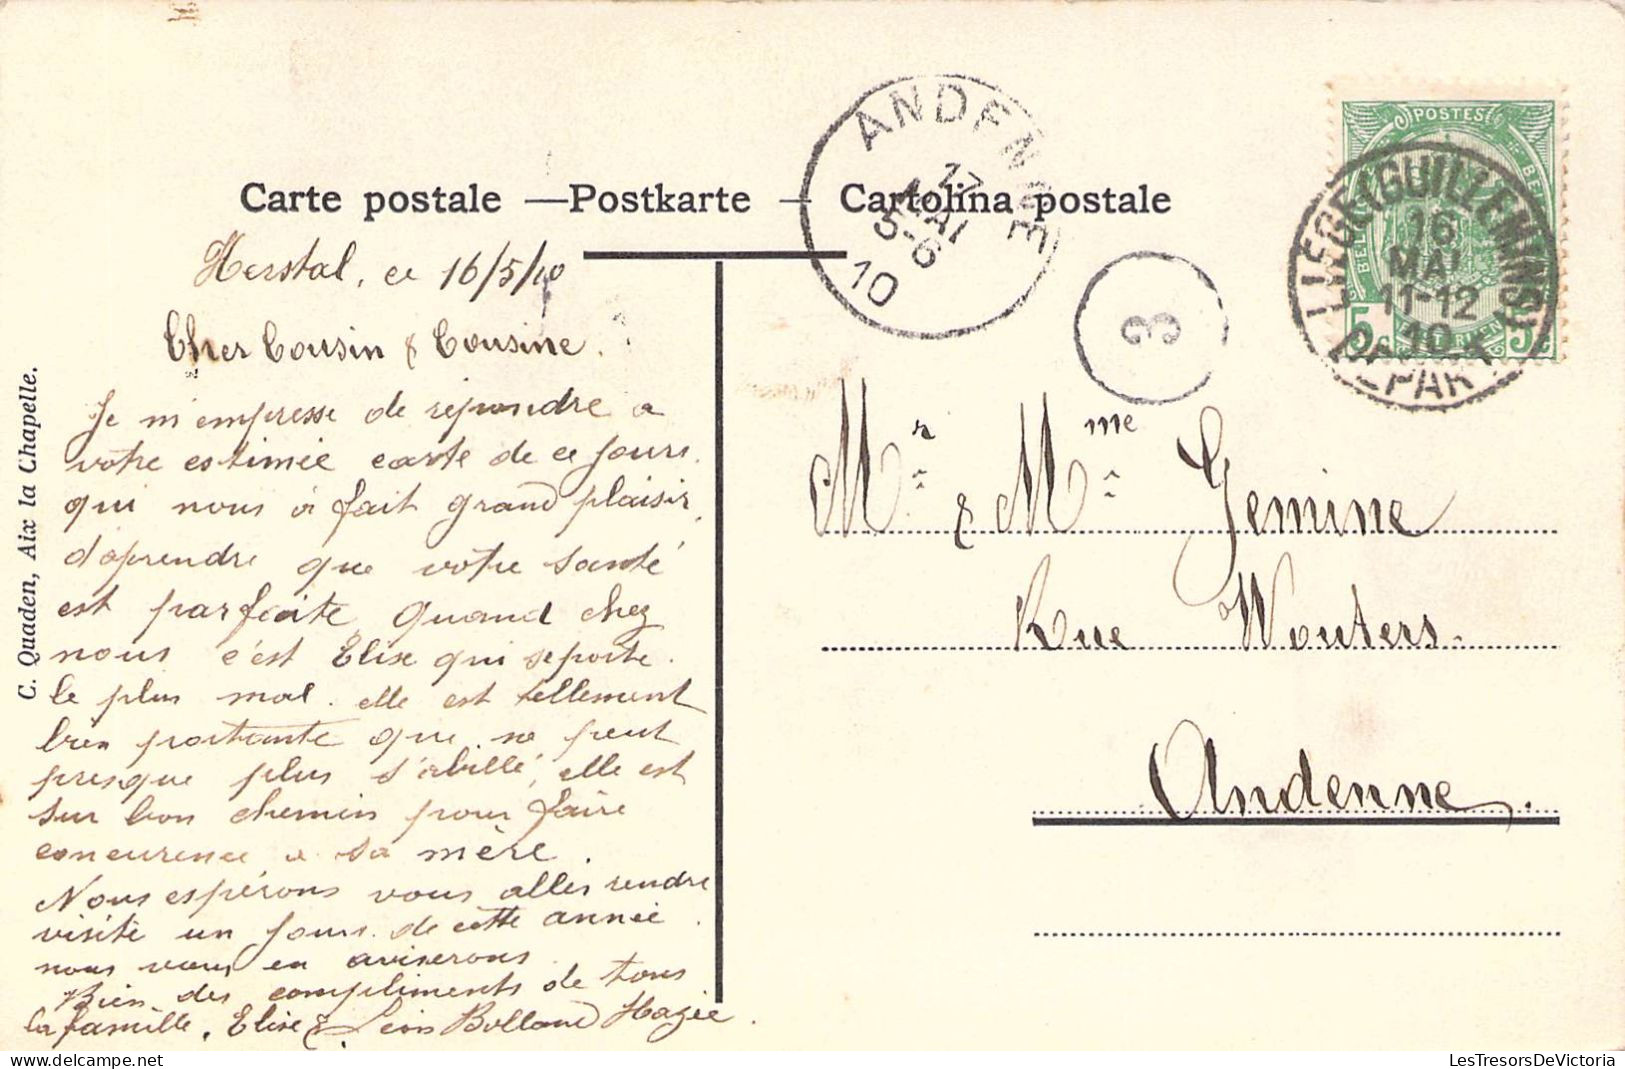 Carte postale — Postkarte — Cartolina postale
ANDENNE
17
MAI
5-6
10
3
POSTES
LIEGE (GUILLEMINS)
16
MAI
11-12
10
DEPART
5c 5c
Herstal, ce 16/5/10
Cher Cousin & Cousine.
Je m'empresse de repondre a
votre estimée carte de ce jours.
qui nous à fait grand plaisir,
d'aprendre que votre santé
est parfaite quand chez
nous c'est Elise qui seporte.
le plus mal. elle est tellement
bien portante que ne peut
presque plus s'abillé, elle est
sur bon chemin pour faire
concurence a sa mère.
Nous espérons vous aller rendre
visite un jours de cette année.
nous vous en aviserons.
Bien des compliments de tous
la famille. Elise & Léon Bolland Hazée.
C. Quaden, Aix la Chapelle.
Mr & Mme Gemine
Rue Wouters.
Andenne.
LesTresorsDeVictoria